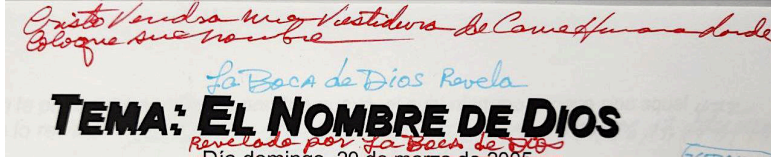 Cristo Vendra una Vestidura de Carne Humana donde
Coloque su nombre
La Boca de Dios Revela
TEMA: EL NOMBRE DE DIOS
Revelado por La Boca de Dios
Día domingo, 20 de marzo de 2005